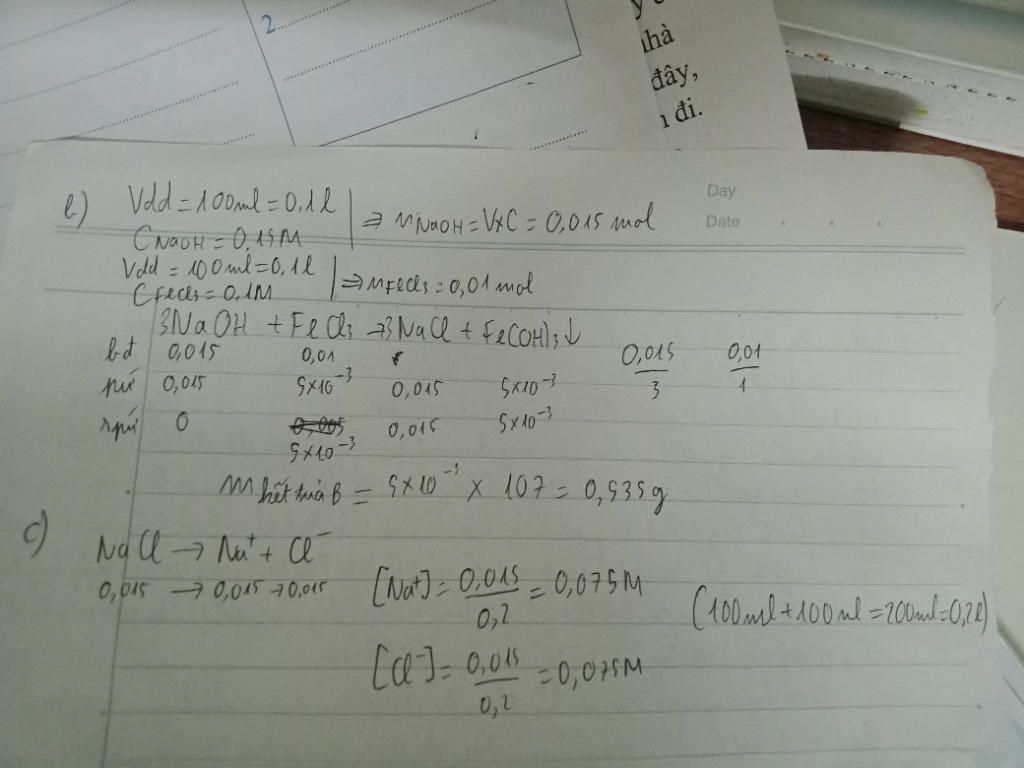 2
hà
đây,
đi.
Day
Date
b) Vdd = 100ml = 0,1l
C NaOH = 0,15M
⇒ nNaOH = V×C = 0,015 mol
Vdd = 100ml = 0,1l
C FeCl3 = 0,1M
⇒ nFeCl3 = 0,01 mol
3NaOH + FeCl3 → 3NaCl + Fe(OH)3↓
bđ 0,015 0,01 0,015/3 0,01/1
pứ 0,015 5×10⁻³ 0,015 5×10⁻³
spứ 0 0,005 0,015 5×10⁻³
5×10⁻³
m kết tủa B = 5×10⁻³ × 107 = 0,535g
c)
NaCl → Na⁺ + Cl⁻
0,015 → 0,015 → 0,015
[Na⁺] = 0,015/0,2 = 0,075M
(100ml + 100ml = 200ml = 0,2l)
[Cl⁻] = 0,015/0,2 = 0,075M